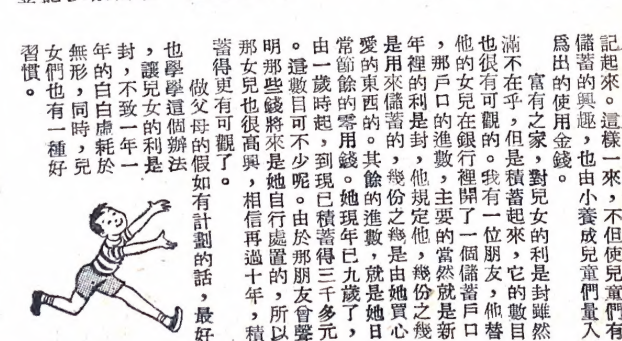 記起來。這樣一來，不但使兒童們有
儲蓄的興趣，也由小養成兒童們量入
爲出的使用金錢。
富有之家，對兒女的利是封雖然
滿不在乎，但是積蓄起來，它的數目
也很有可觀的。我有一位朋友，他替
他的女兒在銀行裡開了一個儲蓄戶口
，那戶口的進數，主要的當然就是新
年裡的利是封，他規定他，幾份之幾
是用來儲蓄的，幾份之幾是由她買心
愛的東西的。其餘的進數，就是她日
常節餘的零用錢。她現年已九歲了，
由一歲時起，到現已積蓄得三千多元
。這數目可不少呢。由於那朋友曾聲
明那些錢將來是她自行處置的，所以
那女兒也很高興，相信再過十年，積
蓄得更有可觀了。
做父母的假如有計劃的話，最好
也學學這個辦法
，讓兒女的利是
封，不致一年一
年的白白虛耗於
無形，同時，兒
女們也有一種好
習慣。